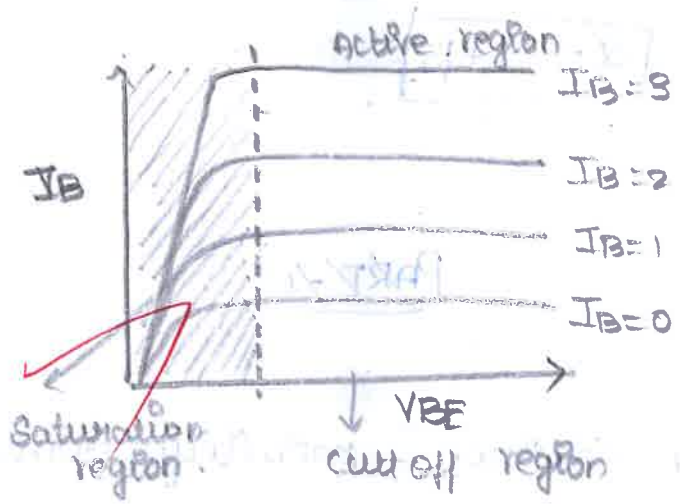 Active region
IB = 3
IB
IB = 2
IB = 1
IB = 0
VBE
Saturation
region.
cutt off region